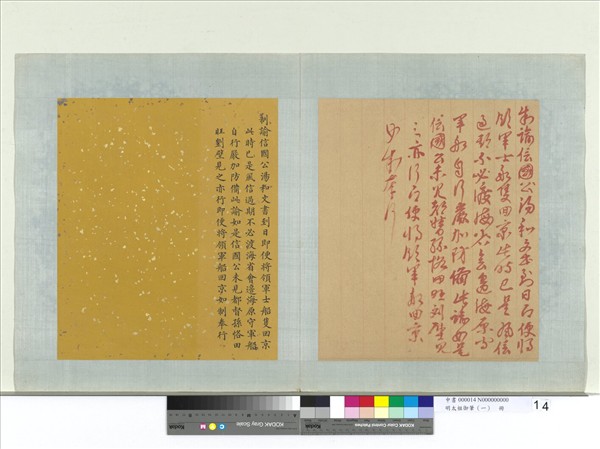 制諭信國公湯和文書到日即便將
領軍士船隻回京此時已是風信
過期不必渡海省會邊海原守
軍船自行嚴加防備此諭如是
信國公未見都督孫恪田旺劉璧見
之亦行即便將領軍船回京
如制奉行
制諭信國公湯和文書到日即便將領軍士船隻回京
此時已是風信過期不必渡海省會邊海原守軍船
自行嚴加防備此諭如是信國公未見都督孫恪田
旺劉璧見之亦行即便將領軍船回京如制奉行
KODAK Gray Scale
KODAK Color Control Patches
中書 000014 N000000000
明太祖御筆(一) 冊
14